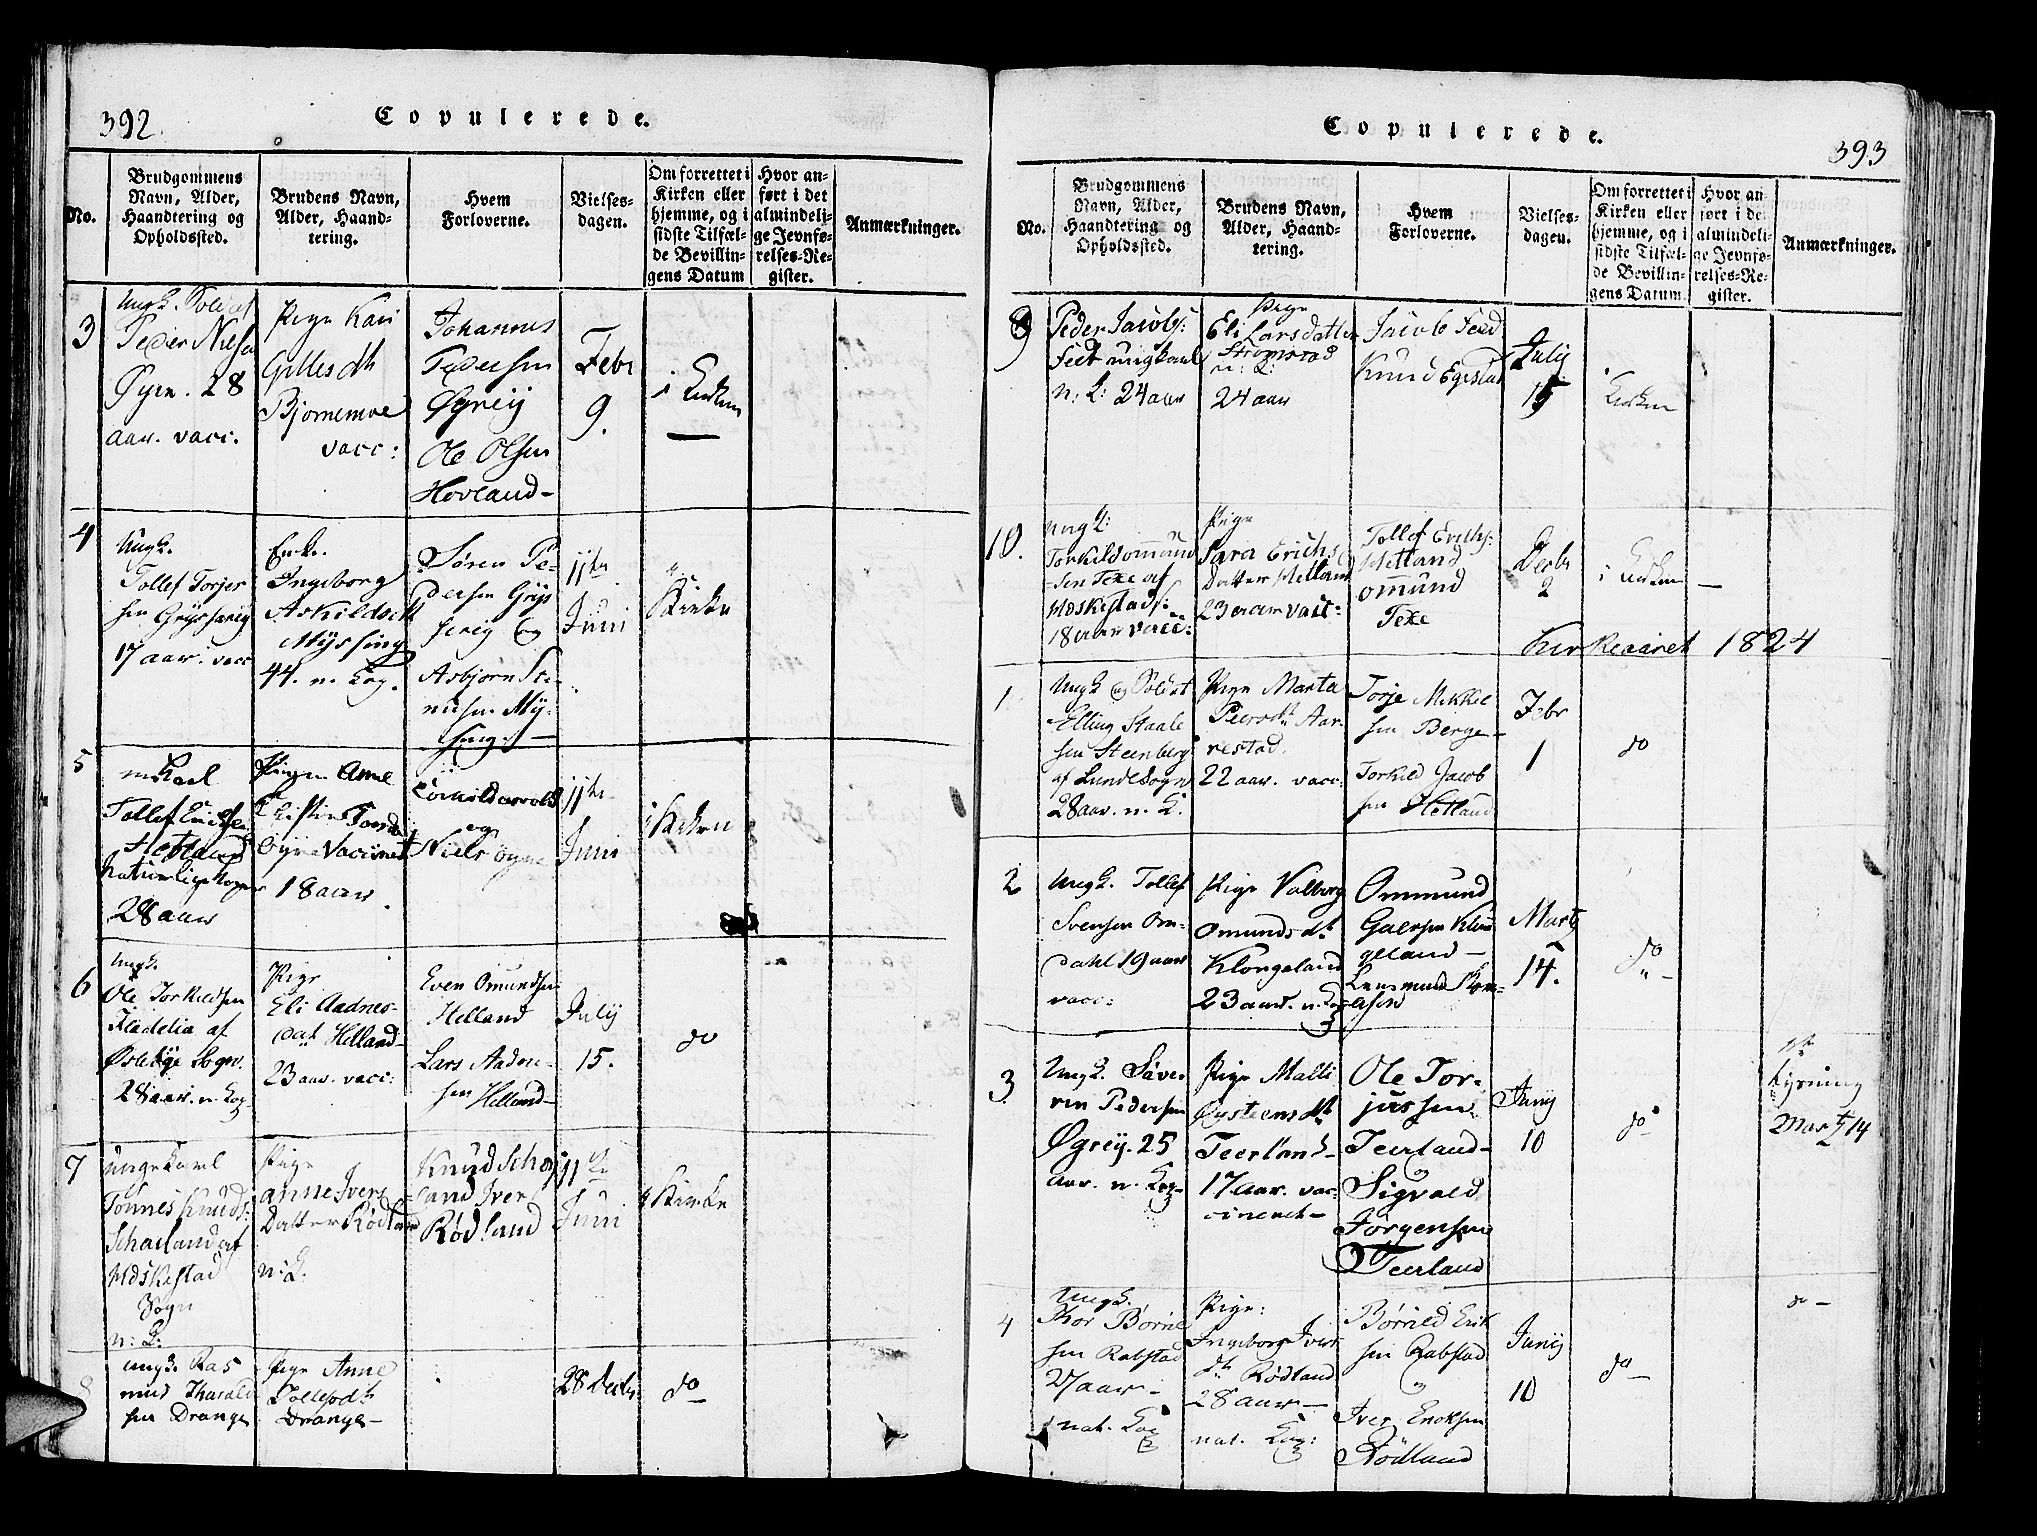 392.
Copulerede.
No.
Brudgommens
Navn, Alder,
Haandtering og
Opholdssted.
Brudens Navn,
Alder, Haand-
tering.
Hvem
Forloverne.
Vielses-
dagen.
Om forrettet i
Kirken eller
hjemme, og i
sidste Tilfæl-
de Bevillin-
gens Datum
Hvor an-
ført i det
almindeli-
ge Jevnfø-
relses-Re-
gister.
Anmærkninger.
3
Ungk. Soldat
Peder Nielsen
Øgrei. 28
aar. vacc.
Pige Kari
Gillesdtr
Bjornemoe
vacc:
Johannes
Pedersen
Øgreij
Ole Olsen
Hovland-
Febr
9.
i Kirken
4
Ungk.
Tollef Torjes
sen Gryssereig
17 aar. vacc
Enke.
Ingeborg
Askildsdtr
Myssing
44. n. Kop.
Søren Pe-
dersen Gryss
sereig og
Asbjorn Ste-
nesen Mys-
sing.
11te
Juni
Kirke
5
Tollef
Hetland
Naturlige Koper
28 aar
Pigen Anne
Vaccinert
18 aar.
og
Niels
11te
Juni
i Kirken
6
Ungk.
Ole Torkildsen
Fladelia af
Sogn.
28 aar. n. Kop-
Pige
Eli Aadnes-
dat Helland-
23 aar. vacc:
Even Omundsen
Helland
Lars Aadne-
sen Helland-
Julij
15.
do
7
ungekarl
Tønnes Knuds:
Schailand af
Uoskestad
Sogn
n: K:
Pige
anne Ivers
Datter Rødland
n: K.
Knud Schai
land Iver
Rødland
11te
Juni
i Kirke
8
ungk. Ras
mus Tharald
sen Drange
Pige Anne
Tollefsdtr
Drange-
28 Decbr
do-
Copulerede.
393
No.
Brudgommens
Navn, Alder,
Haandtering og
Opholdssted.
Brudens Navn,
Alder, Haand-
tering.
Hvem
Forloverne.
Vielses-
dagen.
Om forrettet i
Kirken eller
hjemme, og i
sidste Tilfæl-
de Bevillin-
gens Datum
Hvor an-
ført i det
almindeli-
ge Jevnfø-
relses-Re-
gister.
Anmærkninger.
9
Peder Jacobs:
Feed ungkarl
n: K: 24 aar
Pige
Eli Larsdatter
Strømstad
n: K:
24 aar
Jacob Feed
Knud Egestad
Julij
15
i Kirken
10.
ungk:
Torkild ommund
-sen Texe af
Uoskestads:
18 aar vacc:
Pige
Sara Erichs
Datter Hetland
23 aar vacc:
Tollef Erichs:
Hetland
ommund
Texe
Decbr
2
i Kirken
Kirkeaaret 1824
1
Ungk og Soldat
Elling Staale
sen Steenberg
af Lunde Sogn
28 aar. n. K.
Pige Marta
Peersdtr Aar-
restad.
22 aar. vacc:
Torje Mikkel
sen Berge-
Torkild Jacob
sen Hetland
Febr
1
do
2
Ungk. Tollef
Svensen Om-
dahl 19 aar
vacc:
Pige Valborg
Omundsdtr
Klongeland
23 aar. n. Kop
Ommund
Klun
geland-
Marts
14.
do
3
Ungk. Søve-
ren Pedersen
Øgreij. 25
aar. n. Kop-
Pige Malli
Øysteensdtr
Teerland-
17 aar. vac-
cineret-
Ole Tor-
jussen
Teerland-
Sigvald
Jørgensen
Teerland
Junij
10
do
1te
Lysning
Marts 14
4
Ungk.
Thor Børild
sen Rabstad
27 aar-
nat. Kop
Pige:
Ingeborg Ivers
dtr Rødland
28 aar-
nat. Kop:
Børild Erik
sen Rabstad
Iver Eriksen
Rødland
Junij
10
do-
do-